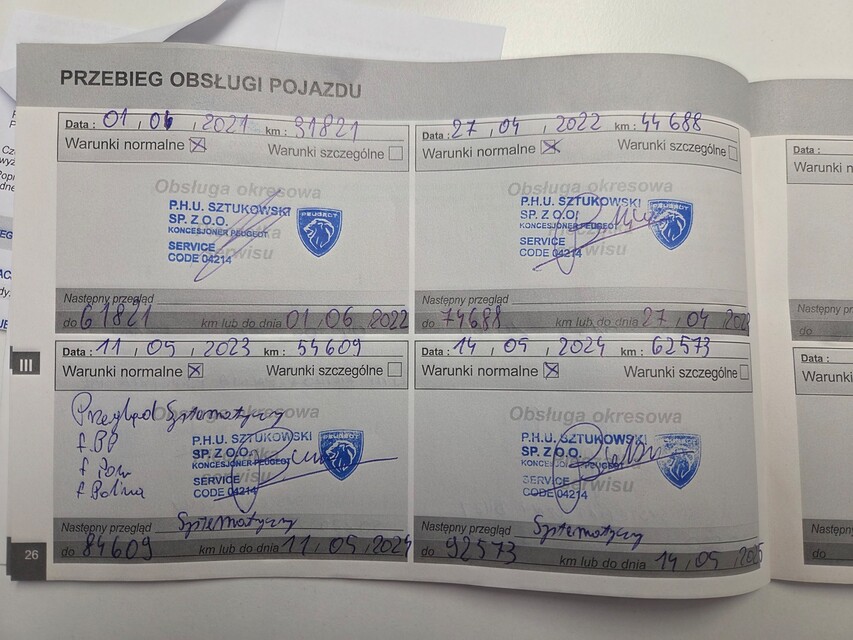 PRZEBIEG OBSŁUGI POJAZDU
Data : 01 , 06 , 2021 km : 31821
Warunki normalne Warunki szczególne
Obsługa okresowa
P.H.U. SZTUKOWSKI
SP. Z O.O.
KONCESJONER PEUGEOT
SERVICE
CODE 04214
PEUGEOT
Następny przegląd
do 61821 km lub do dnia 01 , 06 , 2022
Data : 27 , 04 , 2022 km : 44 688
Warunki normalne Warunki szczególne
Obsługa okresowa
P.H.U. SZTUKOWSKI
SP. Z O.O.
KONCESJONER PEUGEOT
SERVICE
CODE 04214
PEUGEOT
Następny przegląd
do 74688 km lub do dnia 27 , 04
III
Data : 11 , 05 , 2023 km : 54609
Warunki normalne Warunki szczególne
Przegląd Systematyczny
P.H.U. SZTUKOWSKI
SP. Z O.O.
KONCESJONER PEUGEOT
SERVICE
CODE 04214
PEUGEOT
Następny przegląd Systematyczny
do 84609 km lub do dnia 11 , 05 , 2024
Data : 14 , 05 , 2024 km : 62573
Warunki normalne Warunki szczególne
Obsługa okresowa
P.H.U. SZTUKOWSKI
SP. Z O.O.
KONCESJONER PEUGEOT
SERVICE
CODE 04214
Następny przegląd Systematyczny
do 92573 km lub do dnia 14 , 05 , 2025
26
Data :
Warunki n
Następny pr
do
Data :
Warunki
Następny p
do